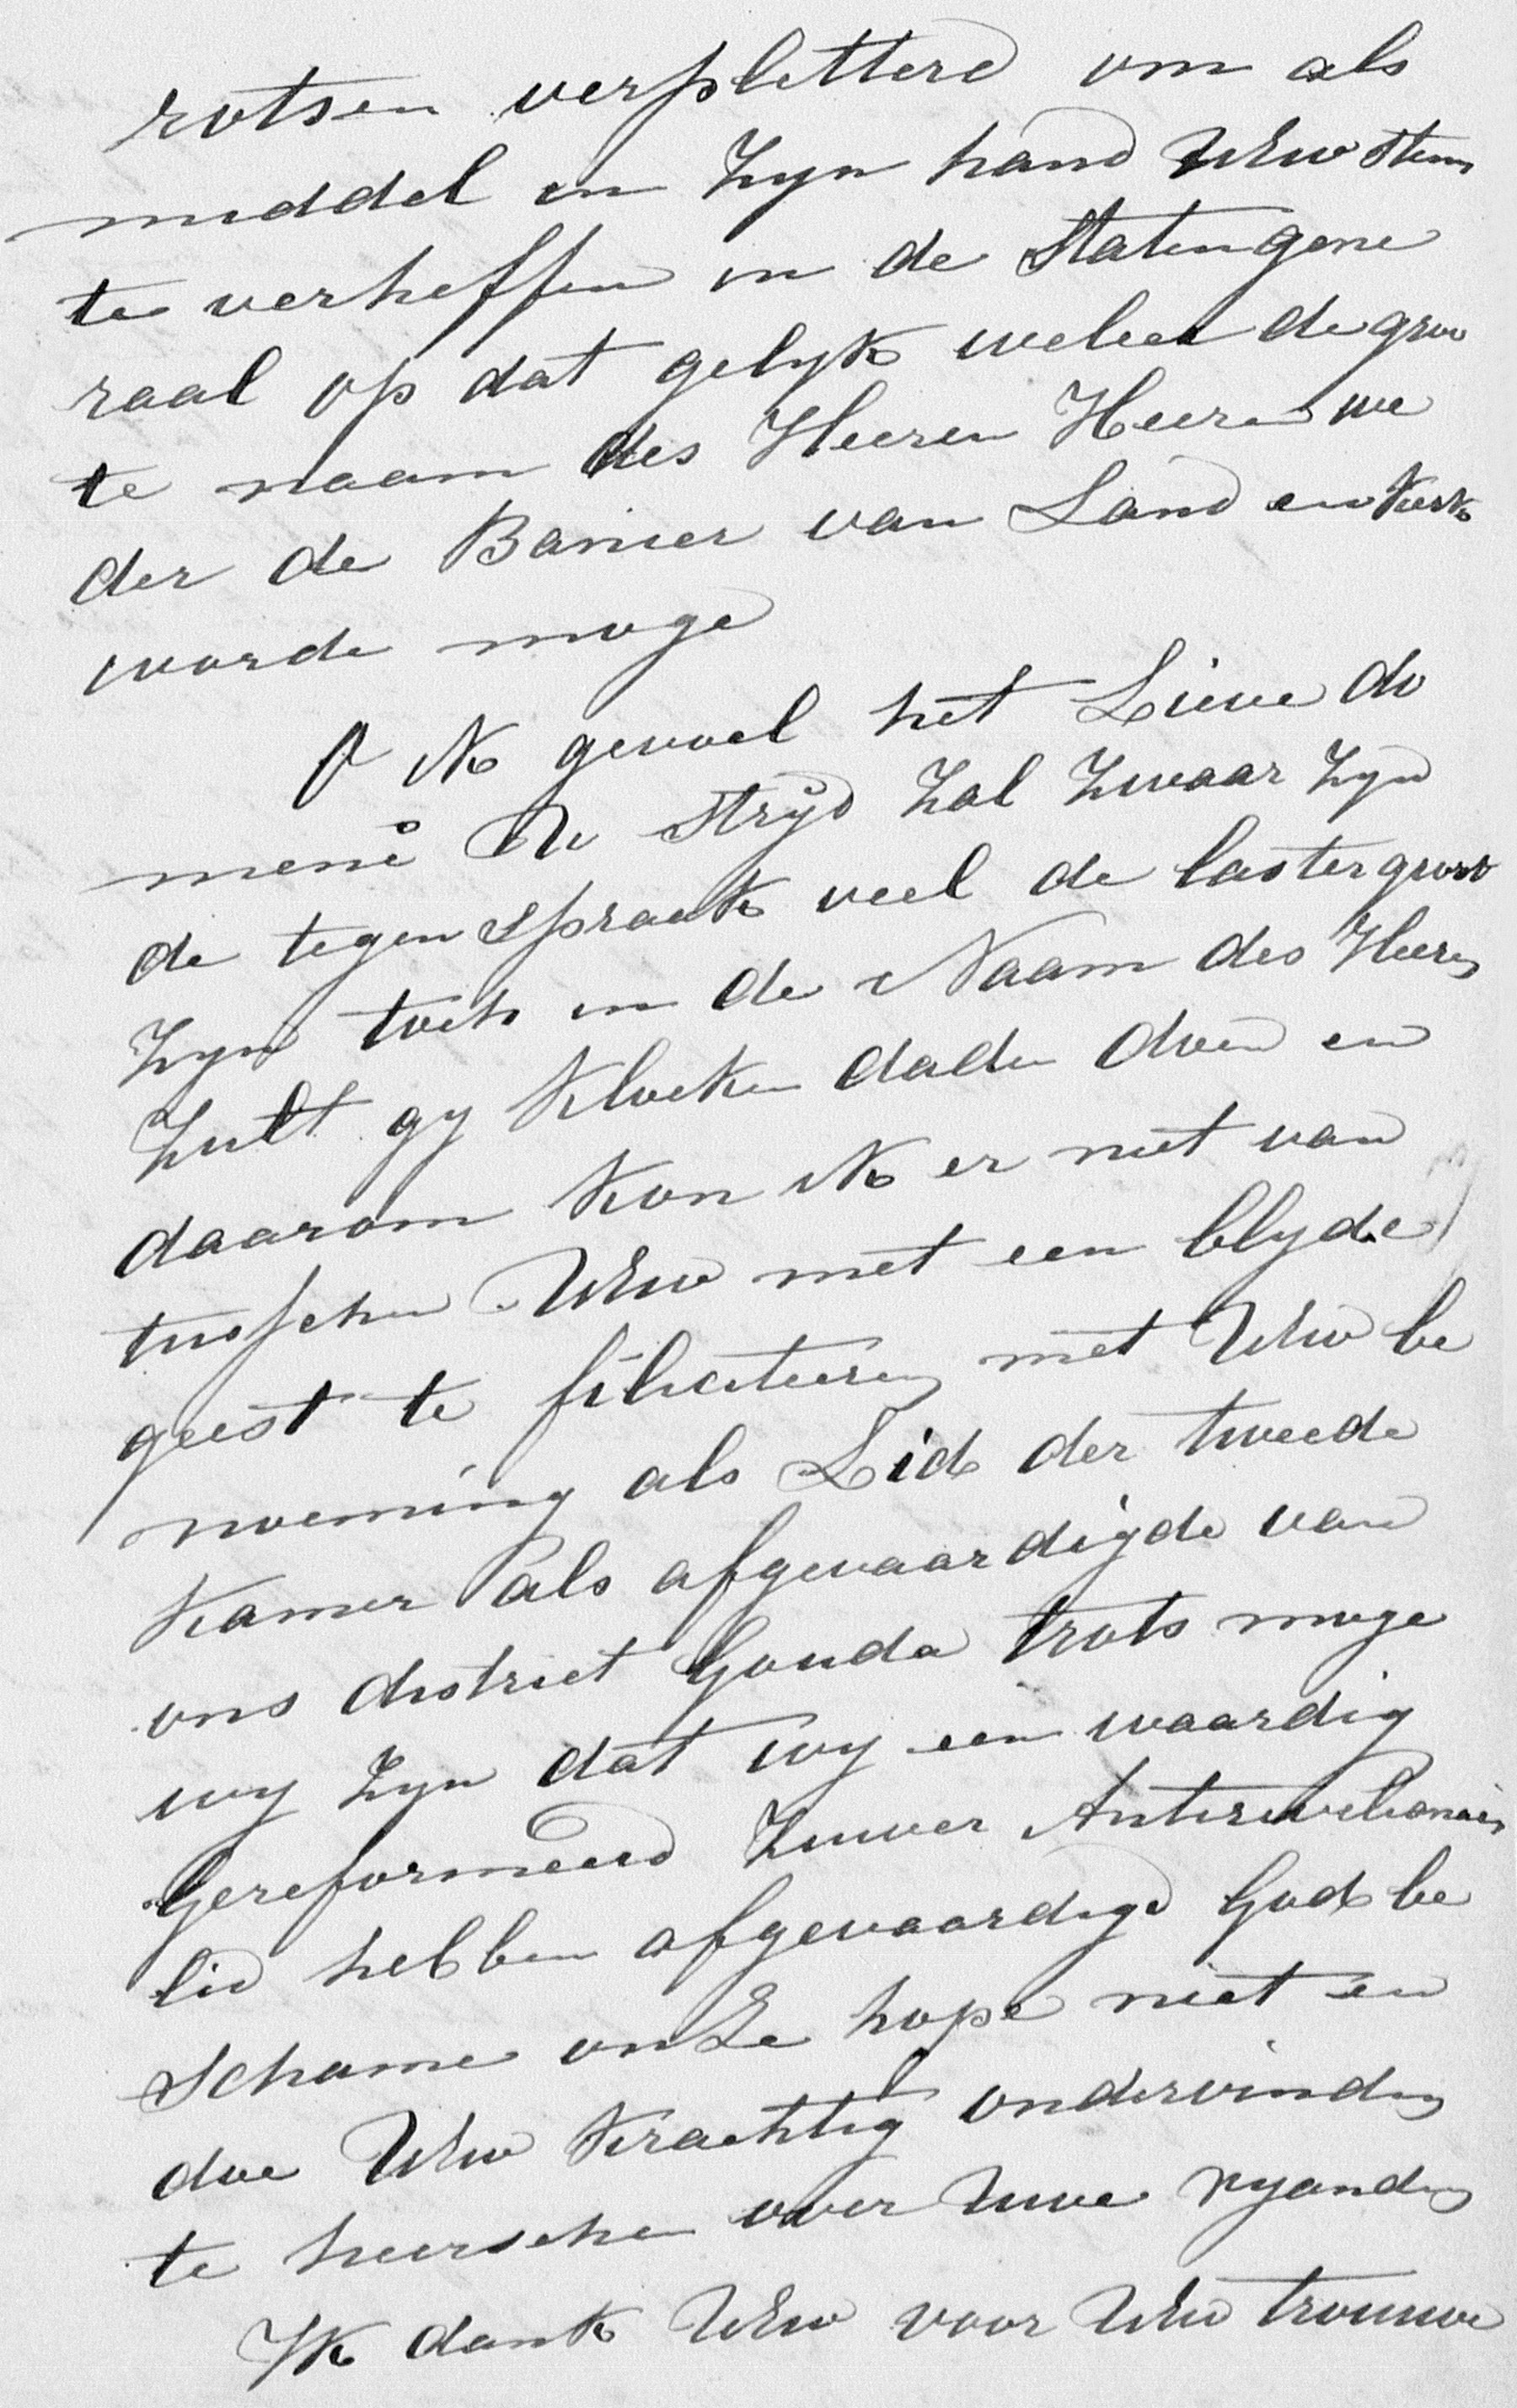 rotsen verplettere om als
middel in Zyn hand UEw stem
te verheffen in de Statengene
raal op dat gelyk weleer de groo
te naam des Heeren Heeren we
der de Banier van Land en Kerk
worde moge
O ik gevoel het Lieve do
mené De strijd zal zwaar zyn
de tegenspraak veel de laster groot
zyn toch in de Naam des Heeren
zult gy kloeke daden doen en
daarom kon ik er niet van
tusschen UEw met een blyde
geest te filiciteeren met UEw be
noeming als Lid der tweede
Kamer als afgevaardigde van
ons district Gouda trots moge
wy zyn dat wy een waardig
Gereformeerd Zuiver Antirevolionair
lid hebben afgevaardigd God be
schame onze hope niet en
doe UEw krachtig ondervinden
te heerschen over Uwe vyanden
Ik dank UEw voor UEw trouwe